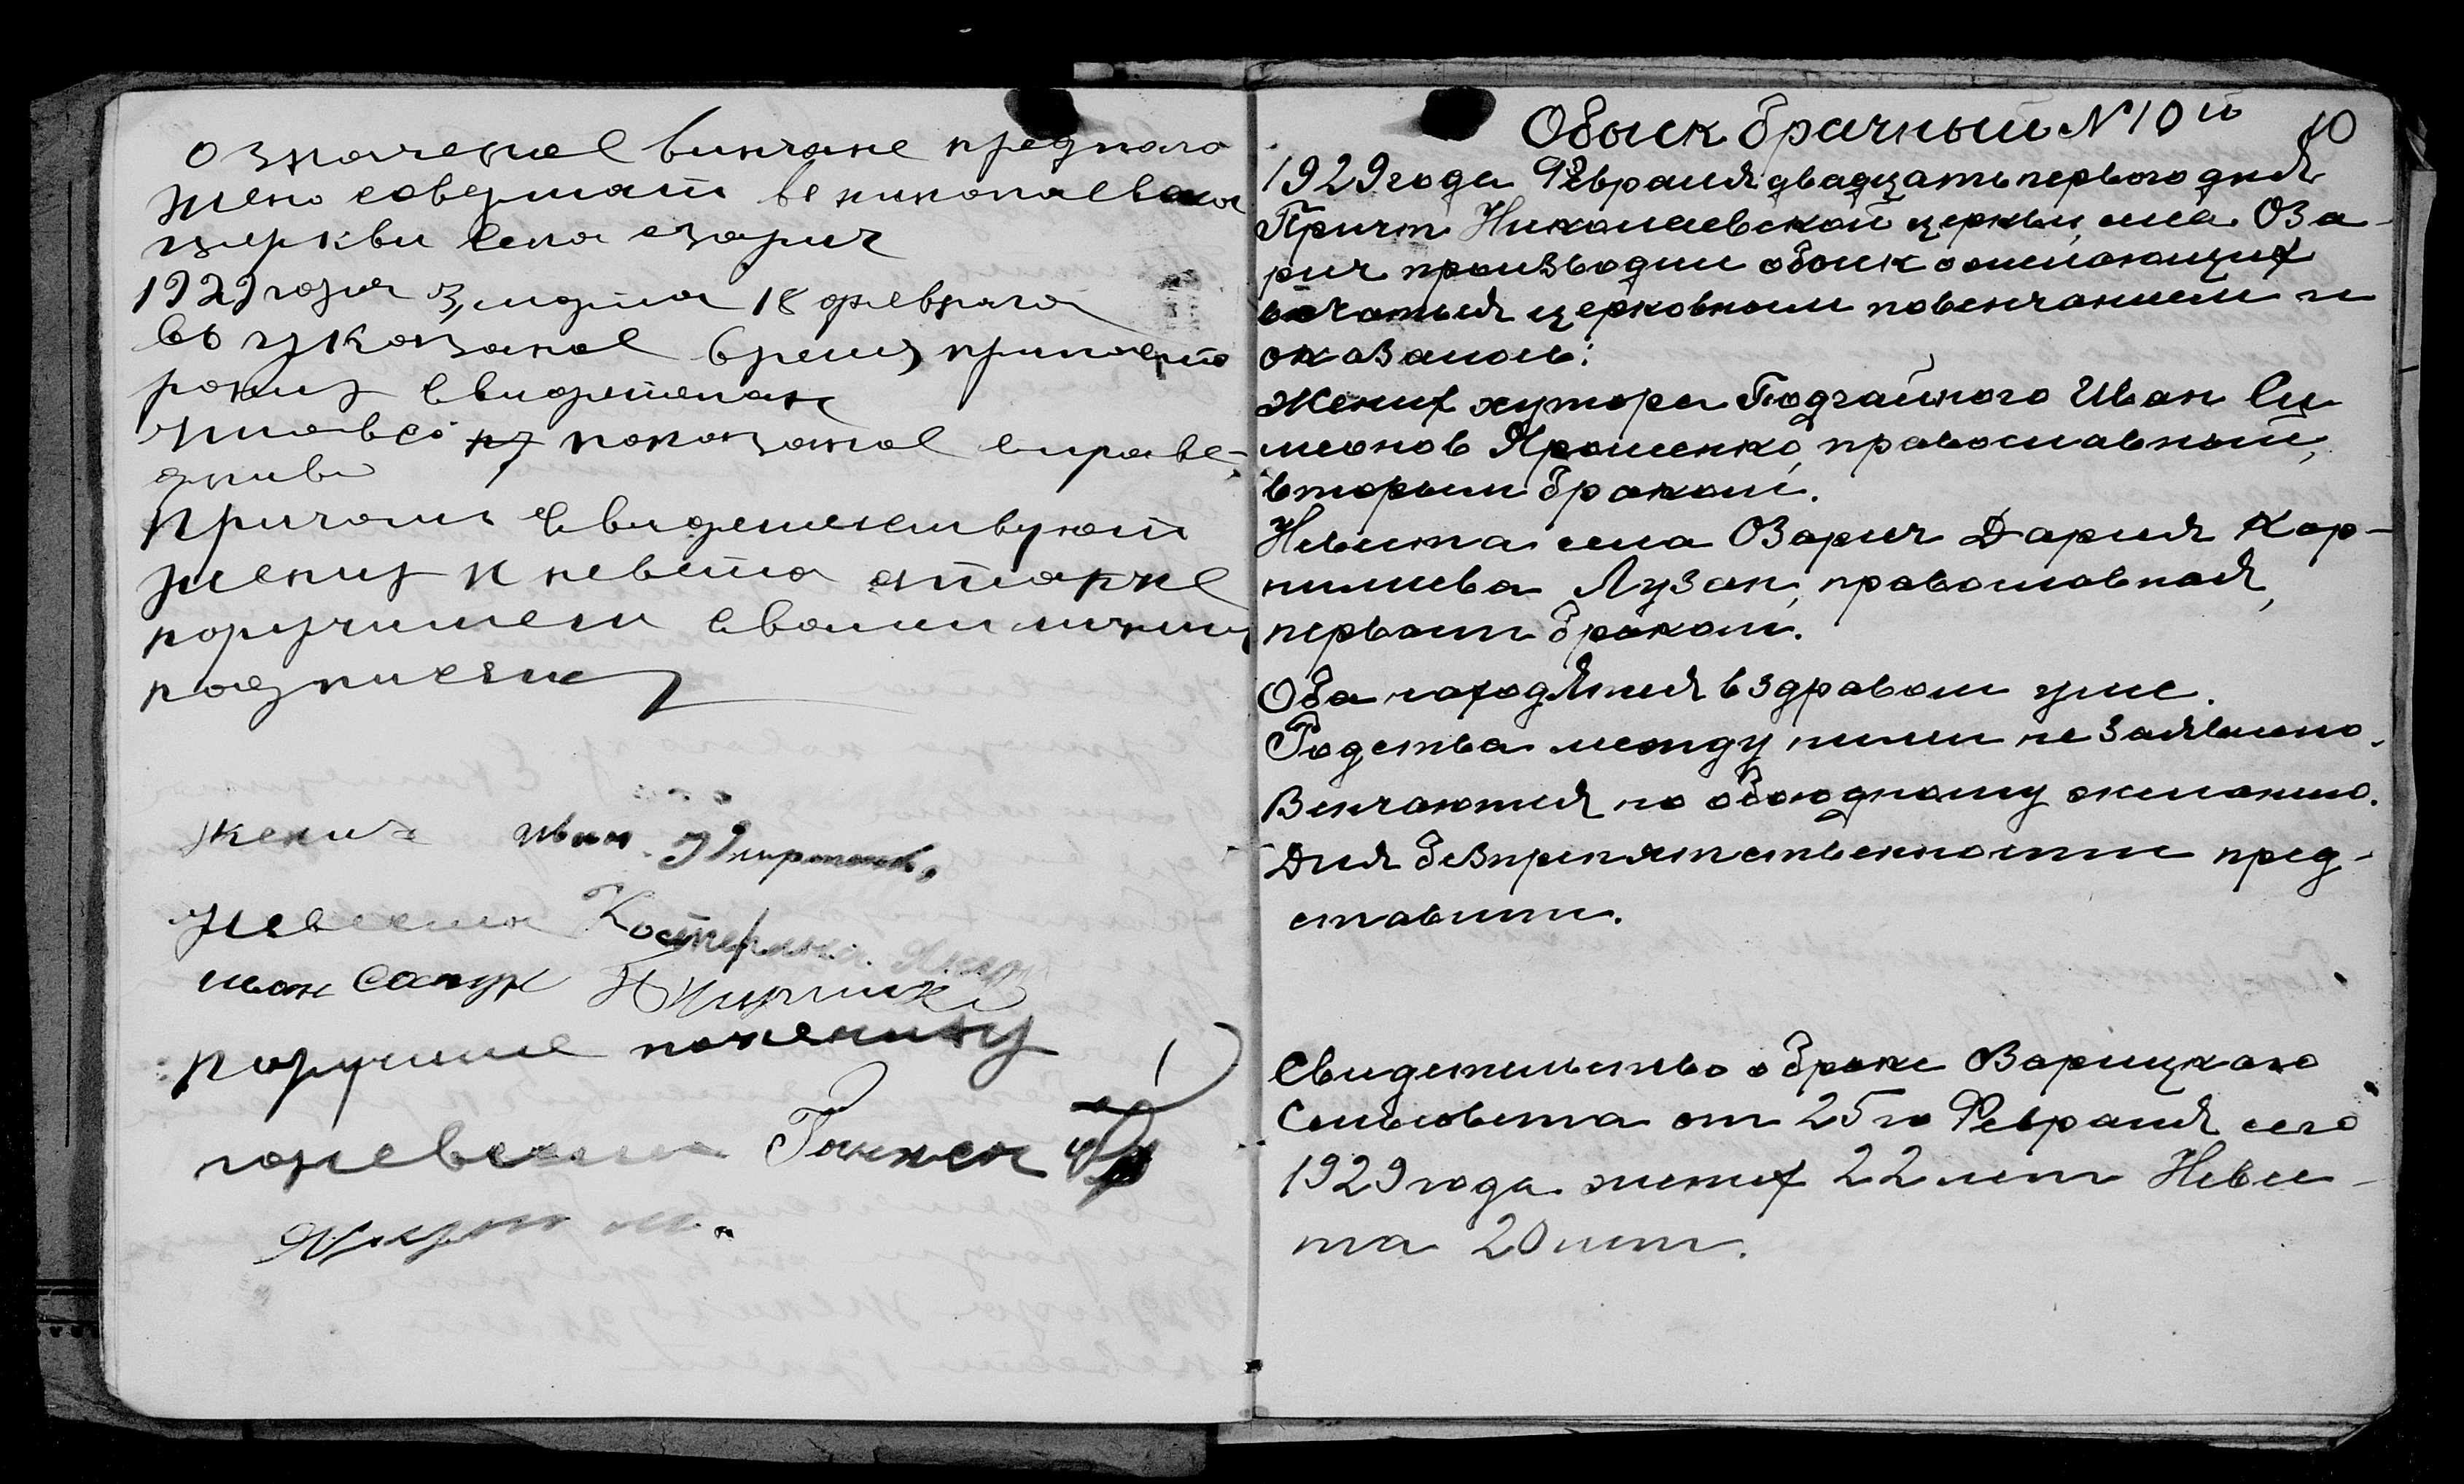 означеное винчане предпола
жено совершит в николаевской
церкви села езарич
1929 года 3, марта 18 февраля
въ указаное время при
свидетелях
что всё показаное справе-
дливо
Причом свидетельствуют
жених и невеста атакже
поручители своими личними
подписями
жених Иван
невеста Костерина
поручише поженику
поневести
Обыск брачный N 10й
10
1929 года Февраля двадцать первого дня
Причт Николаевской церкви, села Оза-
рич производил обыск желающих
церковным повенчанием и
оказалось:
Жених хутора Подгайного Иван Си
меонов Ярошенко, православный,
вторым браком.
Невеста села Озарич Дария Кор-
нилиева Лузан, православная,
первым браком.
Оба находятся в здравом уме.
Родства между ними не заявлено.
Венчаются по обоюдному желанию.
Для безпрепятственности пред-
ставили.
Свидетельство о браке Озарицкого
Сельсовета от 25го Февраля сего
1929 года жених 22 лет Невес-
та 20 лет.